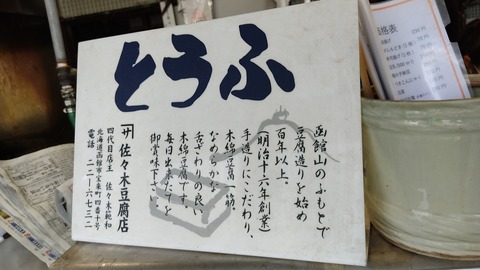 とうふ
函館山のふもとで
豆腐造りを始め
百年以上。
(明治十六年創業)
手造りにこだわり、
木綿豆腐一筋。
なめらかな
舌ざわりの良い
木綿豆腐です。
毎日出来たてを
御賞味下さい。
サ 佐々木豆腐店
四代目店主 佐々木
北海道函館市宝来町四番十号
電話 二二-六七三二
格表